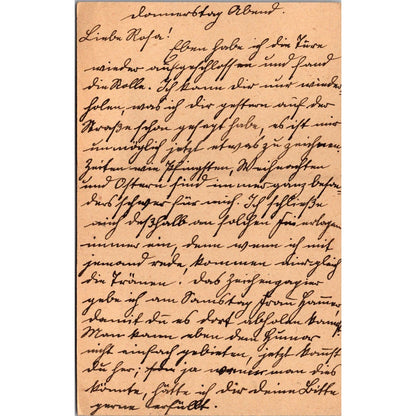 Donnerstag Abend.
Liebe Rosa!
Eben habe ich die Türe
wieder aufgeschlossen und fand
die Rolle. Ich kann dir nur wieder-
holen, was ich dir gestern auf der
Straße schon gesagt habe, es ist mir
unmöglich jetzt etwas zu zeichnen.
Zeiten wie Pfingsten, Weihnachten
und Ostern sind immer ganz beson-
ders schwer für mich. Ich schließe
mich deßhalb an solchen Feiertagen
immer ein, denn wenn ich mit
jemand rede, kommen mir gleich
die Tränen. Das Zeichenpapier
gebe ich am Samstag Frau
damit du es dort abholen kannst.
Man kann eben dem Humor
nicht einfach gebieten, jetzt kommst
du her; ja wenn man dies
könnte, hätte ich dir deine Bitte
gerne erfüllt.